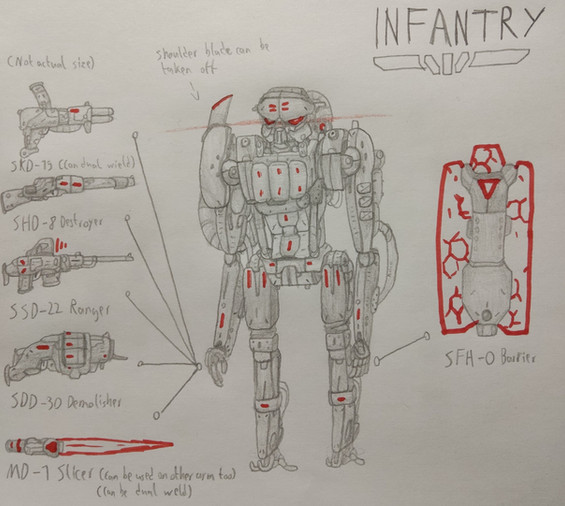 INFANTRY
(Not actual size)
shoulder blade can be
taken off
SKD-35 (can dual wield)
SHD-8 Destroyer
SSD-22 Ranger
SDD-30 Demolisher
MD-1 Slicer (can be used on other arm too)
(can be dual weld)
SFH-0 Barrier